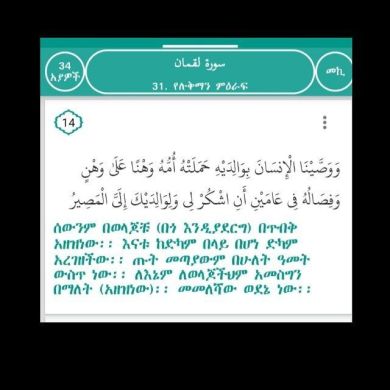 34
አያዎች
سورة لقمان
31. የሉቅማን ምዕራፍ
መኪ
14
وَوَصَّيْنَا الْإِنسَانَ بِوَالِدَيْهِ حَمَلَتْهُ أُمُّهُ وَهْنًا عَلَىٰ وَهْنٍ
وَفِصَالُهُ فِي عَامَيْنِ أَنِ اشْكُرْ لِي وَلِوَالِدَيْكَ إِلَيَّ الْمَصِيرُ
ሰውንም በወላጆቹ (በጎ እንዲያደርግ) በጥብቅ
አዘዝነው፡፡ እናቱ ከድካም በላይ በሆነ ድካም
አረገዘችው፡፡ ጡት መጣያውም በሁለት ዓመት
ውስጥ ነው፡፡ ለእኔም ለወላጆችህም አመስግን
በማለት (አዘዝነው)፡፡ መመለሻው ወደኔ ነው፡፡